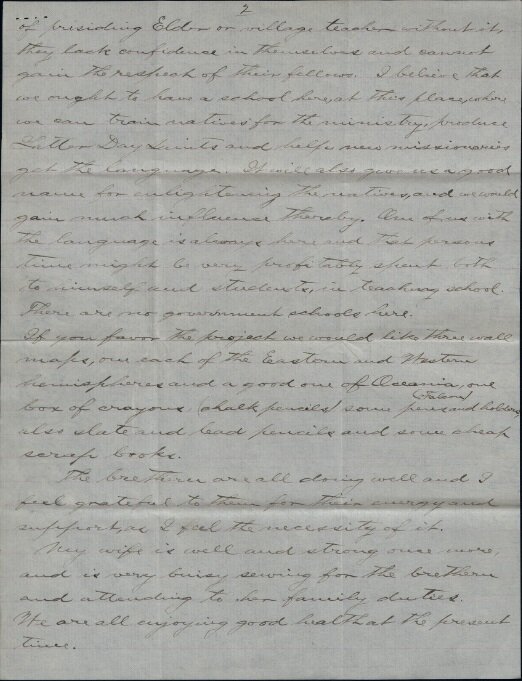 2
of presiding Elder or village teacher without it,
they lack confidence in themselves and cannot
gain the respect of their fellows. I believe that
we ought to have a school here, at this place, where
we can train natives for the ministry, produce
Latter Day Saints and help new missionaries
get the language. It will also give us a good
name for enlightening the natives, and we would
gain much influence thereby. One of us with
the language is always here and that persons
time might be very profitably spent both
to himself and students, in teaching school.
There are no government schools here.
If you favor the project we would like three wall
maps, one each of the Eastern and Western
hemispheres and a good one of Oceania, one
box of crayons (chalk pencils) some pens and holders
(Falcon)
also slate and lead pencils and some cheap
scrap books.
The brethern are all doing well and I
feel grateful to them for their energy and
support, as I feel the necessity of it.
My wife is well and strong once more,
and is very buisy sewing for the brethern
and attending to her family duties.
We are all enjoying good health at the present
time.